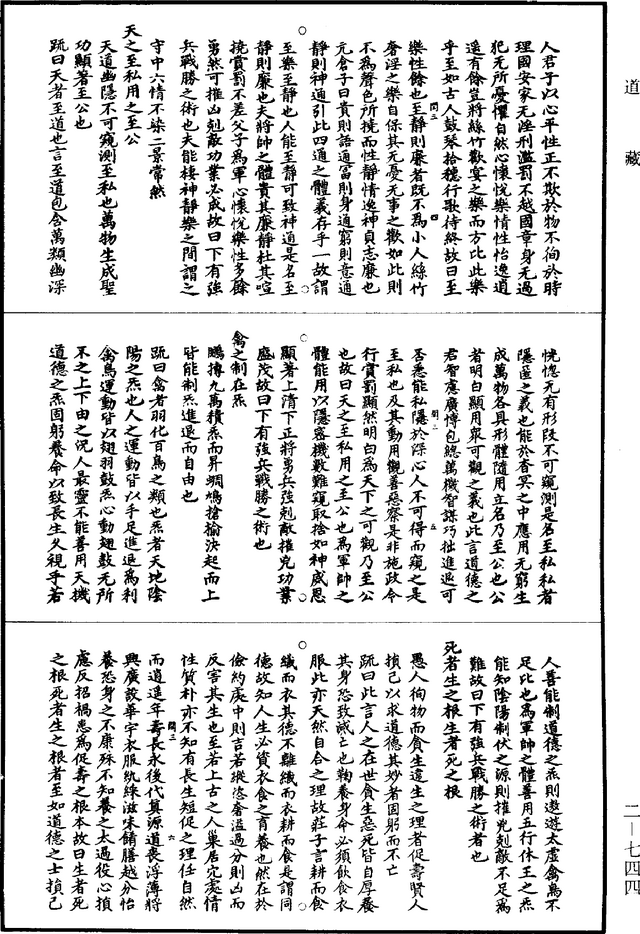 道藏
人君子以心平性正不欺於物不徇於時
理國安家无淫刑濫罰不越國章身无過
犯无所憂懼自然心懷悅樂情性怡逸逍
遥有餘豈將絲竹歡宴之樂而方比此樂
乎至如古人鼓琴拾穗行歌待終故曰至
樂性餘也至靜則廉者既不為小人絲竹
奢淫之樂自保其无憂无事之歡如此則
不為聲色所撓而性靜情逸神貞志廉也
亢倉子曰貴則語通富則身通窮則意通
靜則神通引此四通之體義存乎一故謂
至樂至靜也人能至靜可致神通是名至
靜則廉也夫將帥之體貴其廉靜杜其喧
撓賞罰不差父子為軍心懷悅樂性多餘
勇然可摧凶剋敵功業必成故曰下有強
兵戰勝之術也夫能棲神靜樂之間謂之
守中六情不染二景常然
天之至私用之至公
天道幽隱不可窺測至私也萬物生成聖
功顯著至公也
疏曰天者至道也言至道包含萬類幽深
恍惚无有形段不可窺測是名至私私者
隱匿之義也能於杳冥之中應用无窮生
成萬物各具形體隨用立名乃至公也公
者明白顯用衆可觀之義也此言道德之
君智慮廣博包總萬機智謀巧拙進退可
否悉能私隱於深心人不可得而窺之是
至私也及其動用觀善惡察是非施政令
行賞罰顯然明白為天下之可觀乃至公
也故曰天之至私用之至公也為軍帥之
體能用以隱密機數難窺取捨如神威恩
顯著上清下正將勇兵強剋敵摧兇功業
盛茂故曰下有強兵戰勝之術也
禽之制在炁
鵬摶九萬積炁而昇蜩鳩搶榆決起而上
皆能制炁進退而自由也
疏曰禽者羽化百鳥之類也炁者天地陰
陽之炁也人之運動皆以手足進退為利
禽鳥運動皆以翅羽鼓炁心動翅鼓无所
不之上下由之況人最靈不能善用天機
道德之炁固躬養命以致長生久視乎若
人善能制道德之炁則遨遊太虛禽鳥不
足比也為軍帥之體善用五行休王之炁
能知陰陽制伏之源則摧兇剋敵不足為
難故曰下有強兵戰勝之術者也
死者生之根生者死之根
愚人徇物而貪生違生之理者促壽賢人
損己以求道德其妙者固躬而不亡
疏曰此言人之在世貪生惡死皆自厚養
其身恐致滅亡也鞠養身命必須飲食衣
服此亦天然自合之理故莊子言耕而食
織而衣其德不離織而衣耕而食是謂同
德故知人生必資衣食之育養也然在於
儉約處中則吉若縱恣奢溢過分則凶而
反害其生也至若上古之人巢居穴處情
性質朴亦不知有長生短促之理任自然
而逍遥年壽長永後代真源道喪浮薄將
興廣設華宇衣服紈綵滋味餚膳越分怡
養恐身之不康殊不知養之太過役心損
慮反招禍患為促壽之根本故曰生者死
之根死者生之根者至如道德之士損己
二—七四四